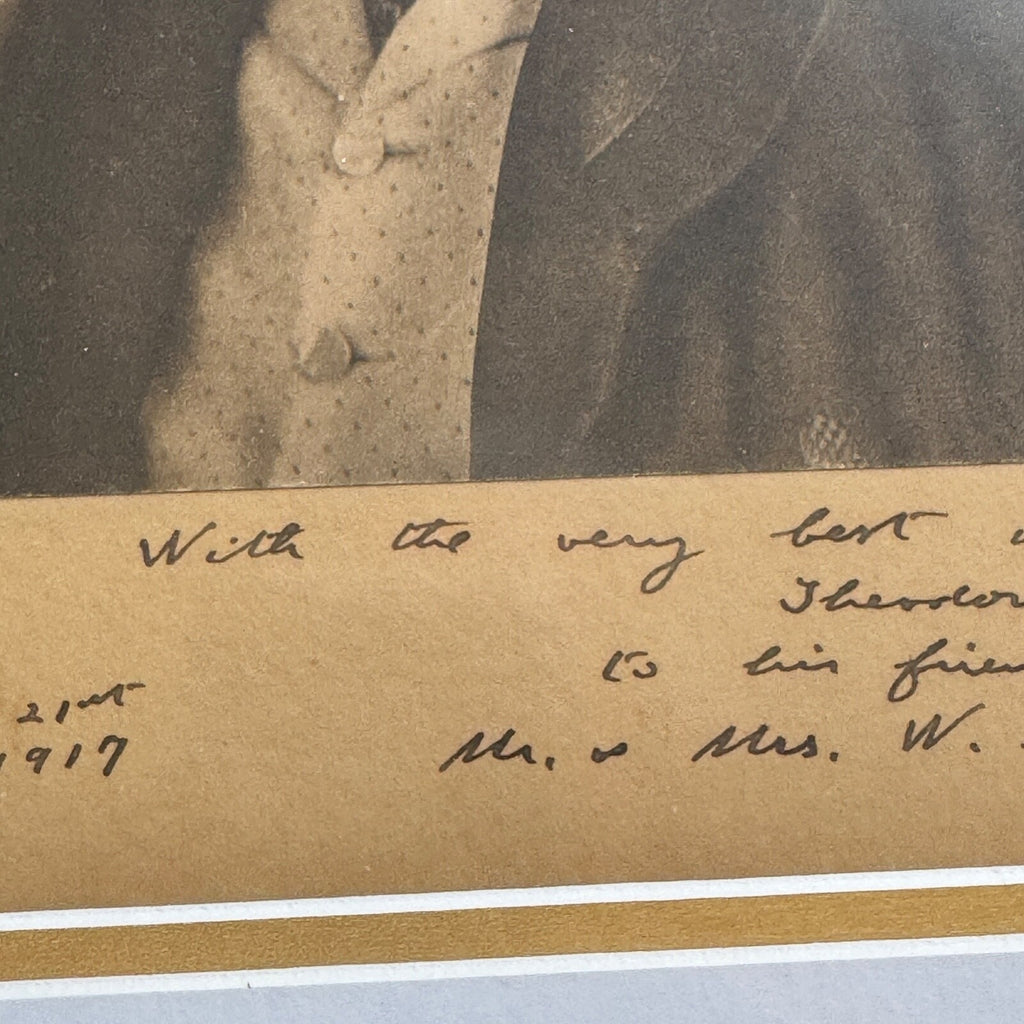 With the very best
Theodor
to his frien
21st
1917
Mr. & Mrs. W.